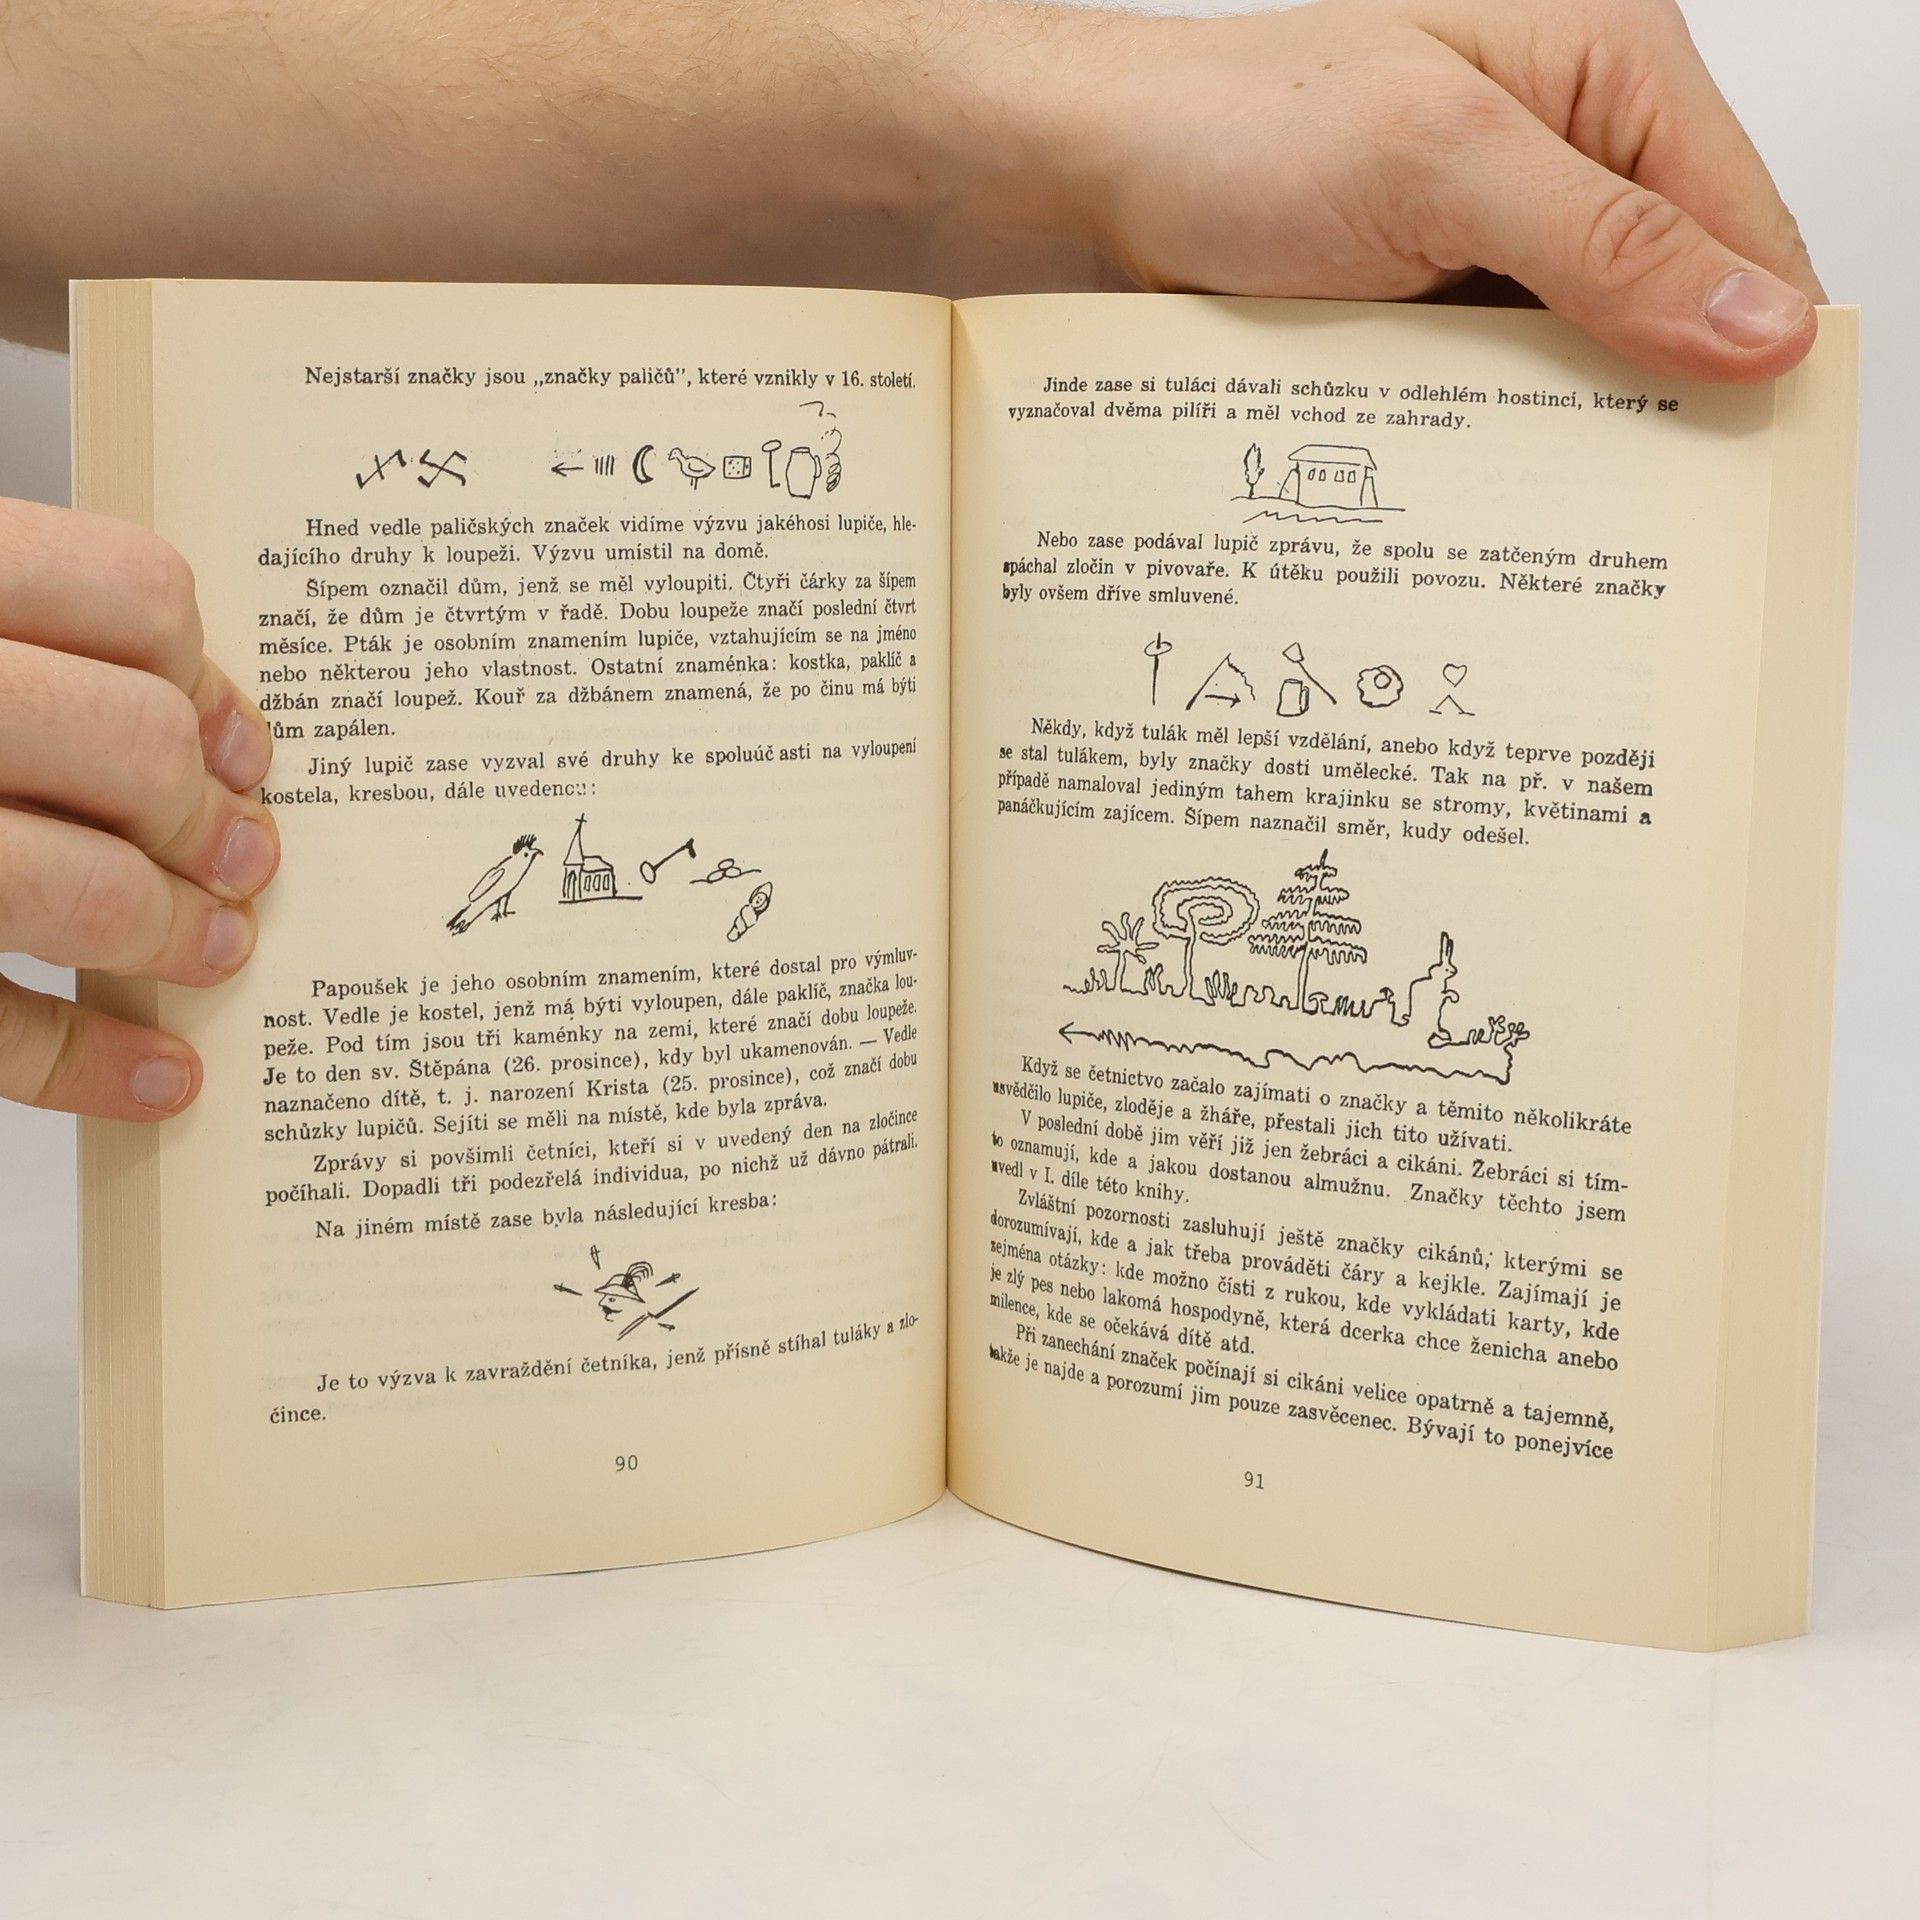 Nejstarší značky jsou „značky paličů”, které vznikly v 16. století.
Hned vedle paličských značek vidíme výzvu jakéhosi lupiče, hle-
dajícího druhy k loupeži. Výzvu umístil na domě.
Šípem označil dům, jenž se měl vyloupiti. Čtyři čárky za šípem
značí, že dům je čtvrtým v řadě. Dobu loupeže značí poslední čtvrt
měsíce. Pták je osobním znamením lupiče, vztahujícím se na jméno
nebo některou jeho vlastnost. Ostatní znaménka: kostka, paklíč a
džbán značí loupež. Kouř za džbánem znamená, že po činu má býti
ům zapálen.
Jiný lupič zase vyzval své druhy ke spoluúčasti na vyloupení
kostela, kresbou, dále uvedenou:
Papoušek je jeho osobním znamením, které dostal pro výmluv-
nost. Vedle je kostel, jenž má býti vyloupen, dále paklíč, značka lou-
peže. Pod tím jsou tři kaménky na zemi, které značí dobu loupeže.
Je to den sv. Štěpána (26. prosince), kdy byl ukamenován. — Vedle
naznačeno dítě, t. j. narození Krista (25. prosince), což značí dobu
schůzky lupičů. Sejíti se měli na místě, kde byla zpráva.
Zprávy si povšimli četníci, kteří si v uvedený den na zločince
počíhali. Dopadli tři podezřelá individua, po nichž už dávno pátrali.
Na jiném místě zase byla následující kresba:
Je to výzva k zavraždění četníka, jenž přísně stíhal tuláky a zlo-
čince.
90
Jinde zase si tuláci dávali schůzku v odlehlém hostinci, který se
vyznačoval dvěma pilíři a měl vchod ze zahrady.
Nebo zase podával lupič zprávu, že spolu se zatčeným druhem
spáchal zločin v pivovaře. K útěku použili povozu. Některé značky
byly ovšem dříve smluvené.
Někdy, když tulák měl lepší vzdělání, anebo když teprve později
se stal tulákem, byly značky dosti umělecké. Tak na př. v našem
případě namaloval jediným tahem krajinku se stromy, květinami a
panáčkujícím zajícem. Šípem naznačil směr, kudy odešel.
Když se četnictvo začalo zajímati o značky a těmito několikráte
usvědčilo lupiče, zloděje a žháře, přestali jich tito užívati.
V poslední době jim věří již jen žebráci a cikáni. Žebráci si tím-
to oznamují, kde a jakou dostanou almužnu. Značky těchto jsem
uvedl v I. díle této knihy.
Zvláštní pozornosti zasluhují ještě značky cikánů, kterými se
dorozumívají, kde a jak třeba prováděti čáry a kejkle. Zajímají je
zejména otázky: kde možno čísti z rukou, kde vykládati karty, kde
je zlý pes nebo lakomá hospodyně, která dcerka chce ženicha anebo
milence, kde se očekává dítě atd.
Při zanechání značek počínají si cikáni velice opatrně a tajemně,
takže je najde a porozumí jim pouze zasvěcenec. Bývají to ponejvíce
91